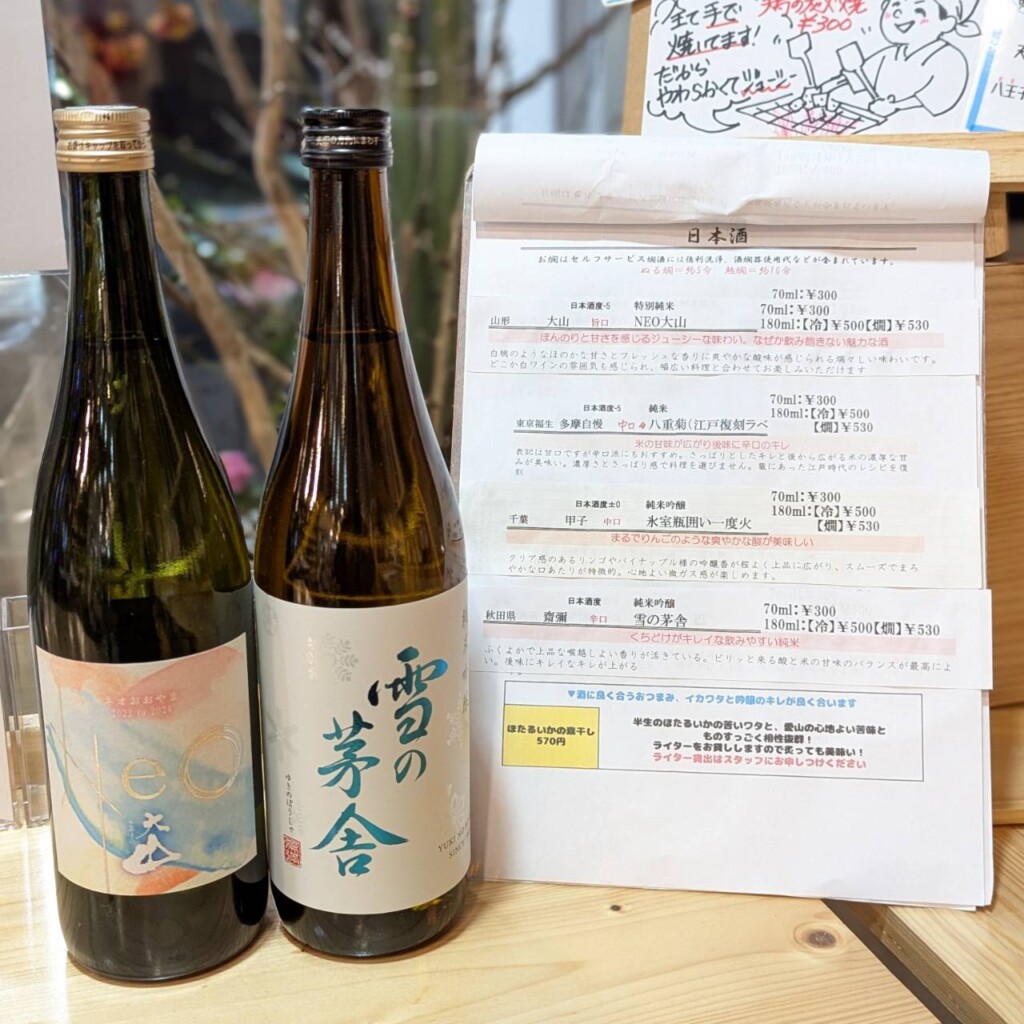 全て手で
焼いてます!
だから
やわらかくて
¥300
八王子
日本酒
お燗はセルフサービス燗酒には徳利洗浄、酒燗器使用代などが含まれています。
ぬる燗=約5分 熱燗=約10分
70ml:¥300
日本酒度-5 特別純米 70ml:¥300
山形 大山 旨口 NEO大山 180ml:【冷】¥500【燗】¥530
ほんのりと甘さを感じるジューシーな味わい。なぜか飲み飽きない魅力な酒
白桃のようなほのかな甘さとフレッシュな香りに爽やかな酸味が感じられる瑞々しい味わいです。
どこか白ワインの雰囲気も感じられ、幅広い料理と合わせてお楽しみいただけます
70ml:¥300
日本酒度-5 純米 180ml:【冷】¥500
東京福生 多摩自慢 中口 八重菊(江戸復刻ラベ 【燗】¥530
米の甘味が広がり後味に辛口のキレ
表記は甘口ですが辛口派にもおすすめ。さっぱりとしたキレと後から広がる米の濃厚な甘
みが美味い。濃厚さとさっぱり感で料理を選びません。蔵にあった江戸時代のレシピを復
刻
70ml:¥300
日本酒度±0 純米吟醸 180ml:【冷】¥500
千葉 甲子 中口 氷室瓶囲い一度火 【燗】¥530
まるでりんごのような爽やかな酸が美味しい
クリア感のあるリンゴやパイナップル様の吟醸香が程よく上品に広がり、スムーズでまろ
やかな口あたりが特徴的。心地よい微ガス感が楽しめます。
日本酒度 純米吟醸 70ml:¥300
秋田県 齋彌 辛口 雪の茅舎 180ml:【冷】¥500【燗】¥530
くちどけがキレイな飲みやすい純米
ふくよかで上品な喉越しよい香りが活きている。ピリッと来る酸と米の甘味のバランスが最高によ
い。後味にキレイなキレが上がる
▼酒に良く合うおつまみ、イカワタと吟醸のキレが良く合います
ほたるいかの素干し
570円
半生のほたるいかの苦いワタと、愛山の心地よい苦味と
ものすっごく相性抜群!
ライターをお貸ししますので炙っても美味い!
ライター貸出はスタッフにお申しつけください
ネオおおやま
NeO
大山
雪の
茅舎
ゆきのぼうしゃ
YUKI NO